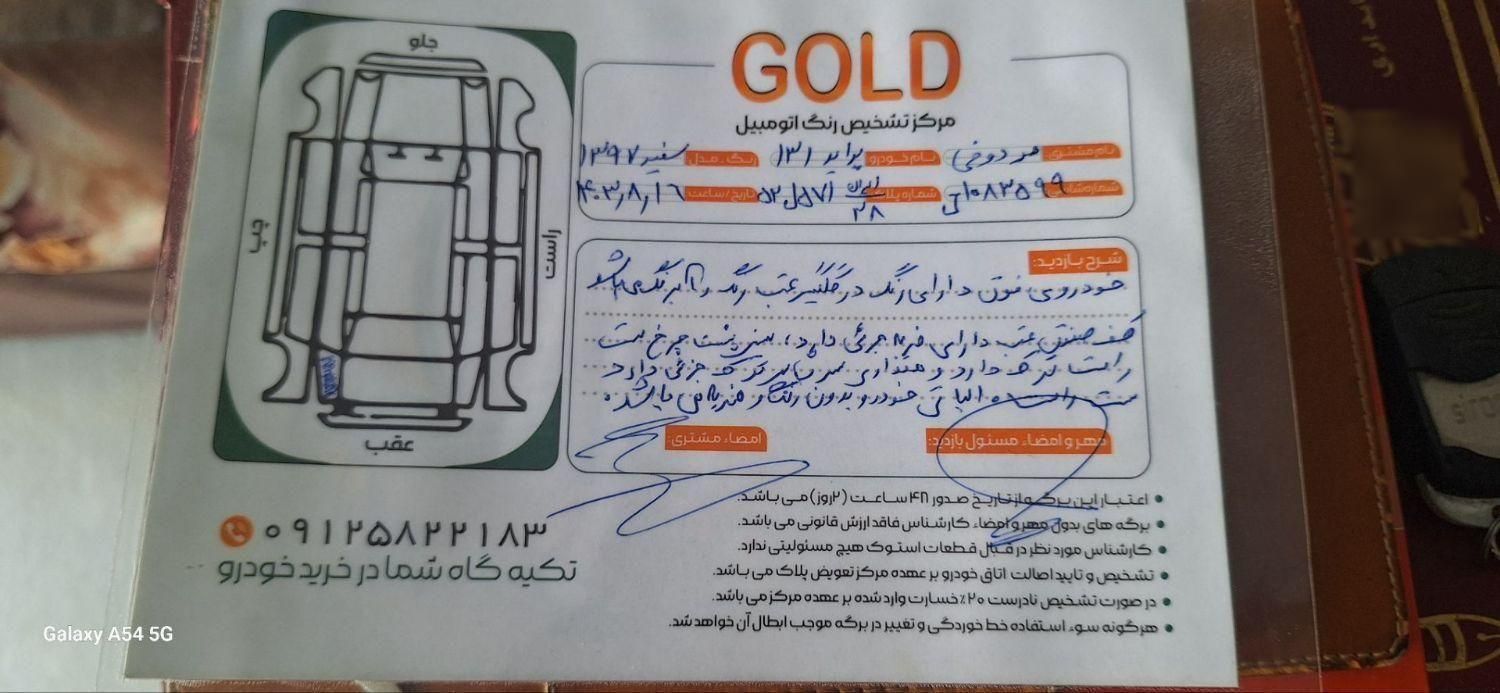 جلو
چپ
راست
عقب
GOLD
مرکز تشخیص رنگ اتومبیل
نام مشتری: نام خودرو پراید ۱۳۱ رنگ ـ مدل: سفید ۱۳۹۷
شماره شاسی شماره پلاک ایران ۲۸ تاریخ / ساعت: ۱۴۰۳٫۸٫۱۶
شرح بازدید:
خودروی فوق دارای رنگ در گلگیر عقب
کف صندوق عقب دارای ضربه جزئی دارد، سینی پشت چرخ سمت
راست ترک دارد و مقداری جزئی دارد
الباقی خودرو بدون رنگ و ضربه می باشد.
مهر و امضاء مسئول بازدید:
امضاء مشتری:
• اعتبار این برگه از تاریخ صدور ۴۸ ساعت (۲روز) می باشد.
• برگه های بدول مهر و امضاء کارشناس فاقد ارزش قانونی می باشد.
• کارشناس مورد نظر در قبال قطعات استوک هیچ مسئولیتی ندارد.
• تشخیص و تایید اصالت اتاق خودرو بر عهده مرکز تعویض پلاک می باشد.
• در صورت تشخیص نادرست ۲۰٪ خسارت وارد شده بر عهده مرکز می باشد.
• هرگونه سوء استفاده خط خوردگی و تغییر در برگه موجب ابطال آن خواهد شد.
۰۹۱۲۵۸۲۲۱۸۳
تکیه گاه شما در خرید خودرو
Galaxy A54 5G